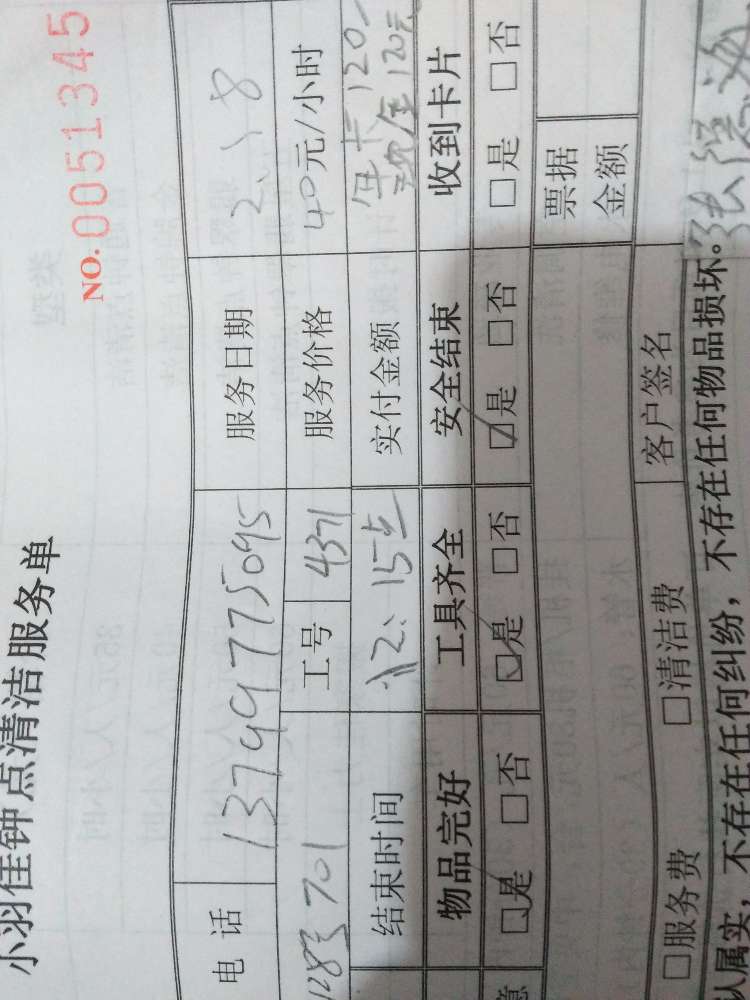 小羽佳钟点清洁服务单
NO.0051345
电 话 13799775095 服务日期 2、18
1283 701 工号 4371 服务价格 40元/小时
结束时间 12、15 实付金额 年卡120 现金120元
物品完好 工具齐全 安全结束 收到卡片
□是 □否 ☑是 □否 ☑是 □否 □是 □否
票据
金额
□服务费 □清洁费 客户签名
认属实，不存在任何纠纷，不存在任何物品损坏。